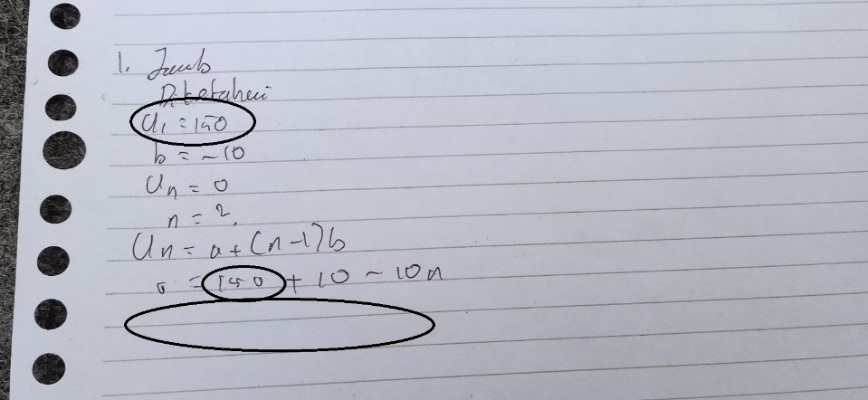 1. Jawab
Diketahui
U₁ = 150
b = -10
Uₙ = 0
n = ?
Uₙ = a + (n-1)b
0 = 150 + 10 - 10n